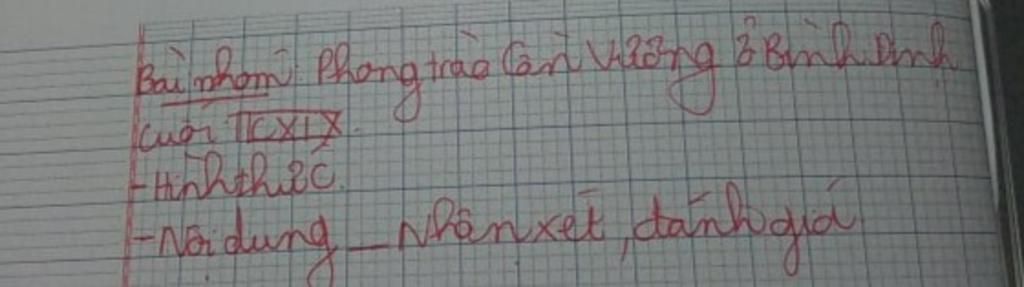 Bài nhóm: Phong trào Cần Vương ở Bình Định
cuối TK XIX.
- Hình thức.
- Nội dung _ Nhận xét, đánh giá